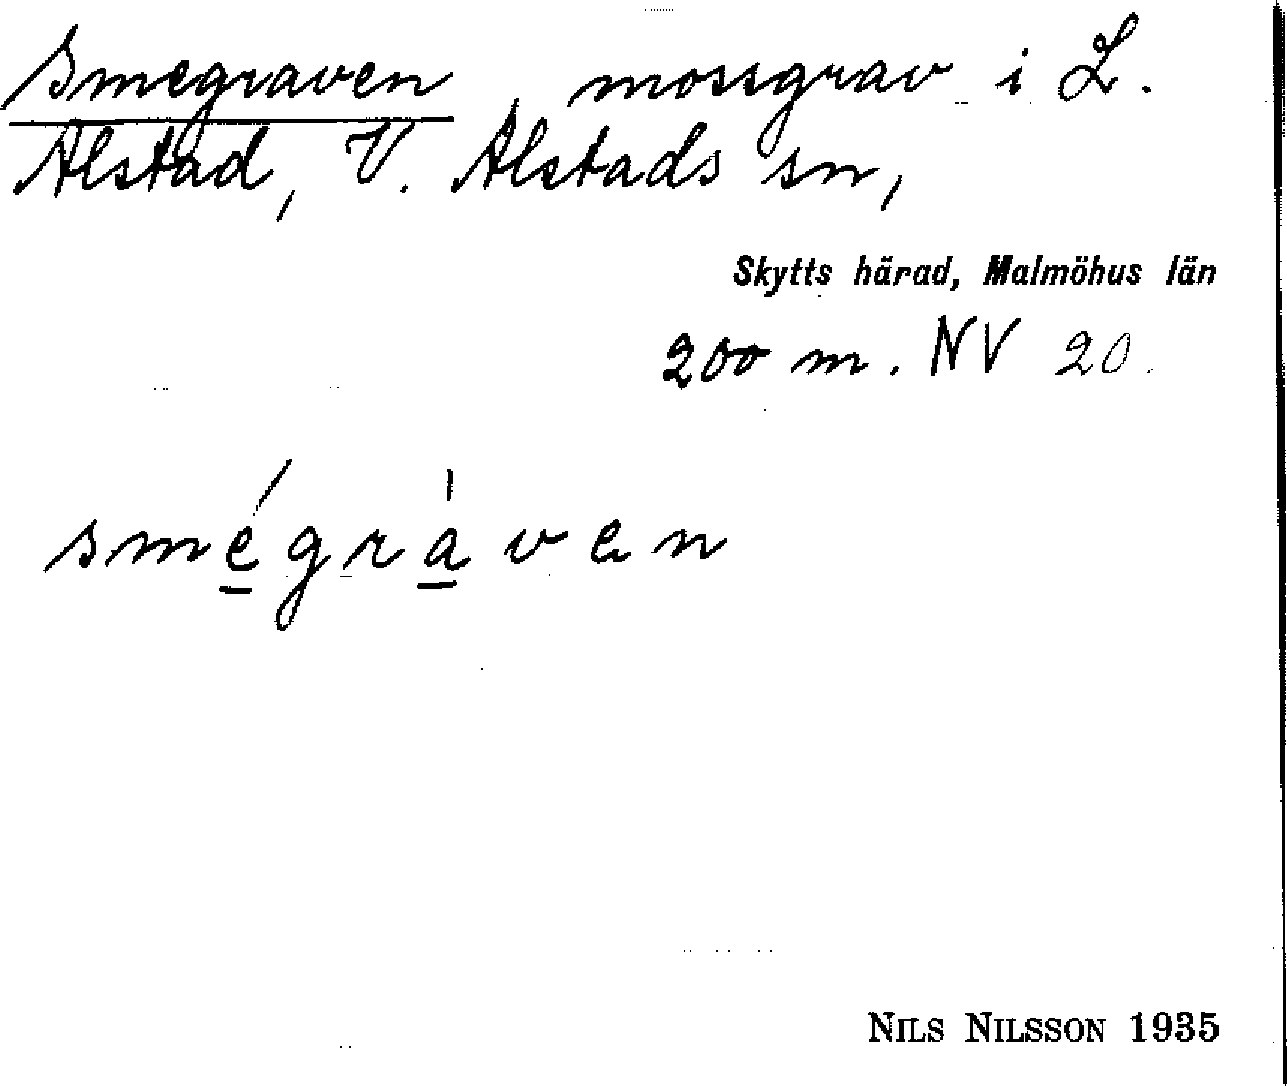 Smegraven, mossgrav i L.
Alstad, V. Alstads sn,
Skytts härad, Malmöhus län
200 m. NV 20.
smégràven
NILS NILSSON 1935